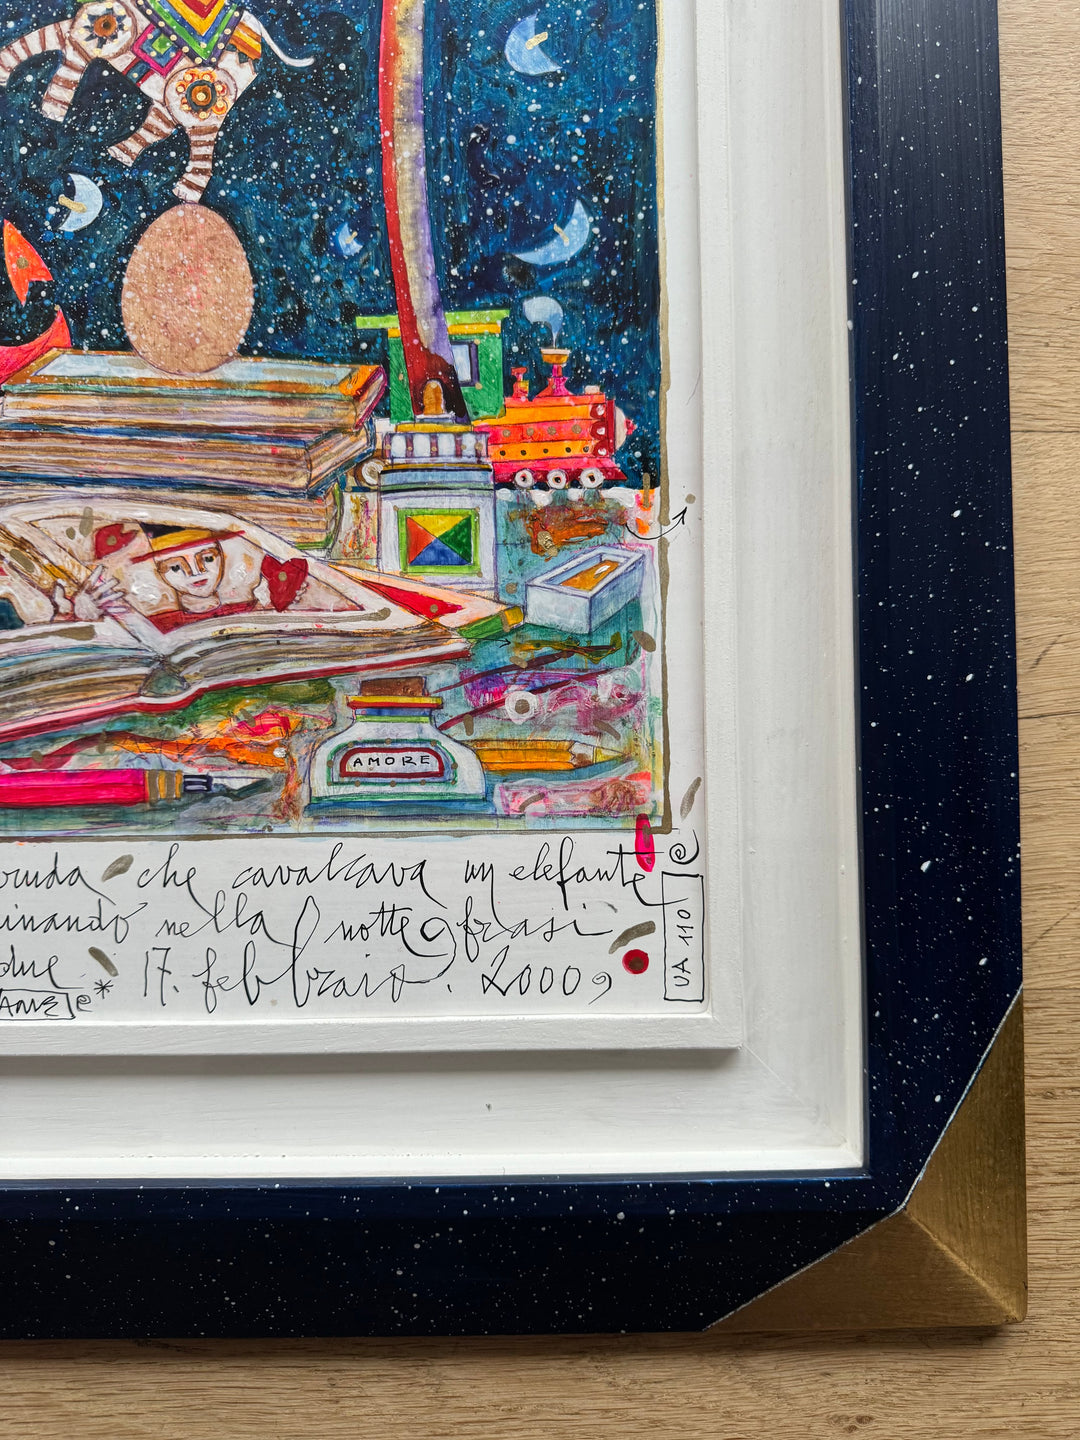 AMORE
che cavalcava un elefante e
nella notte frasi
due 17. febbraio. 2000
UA 110